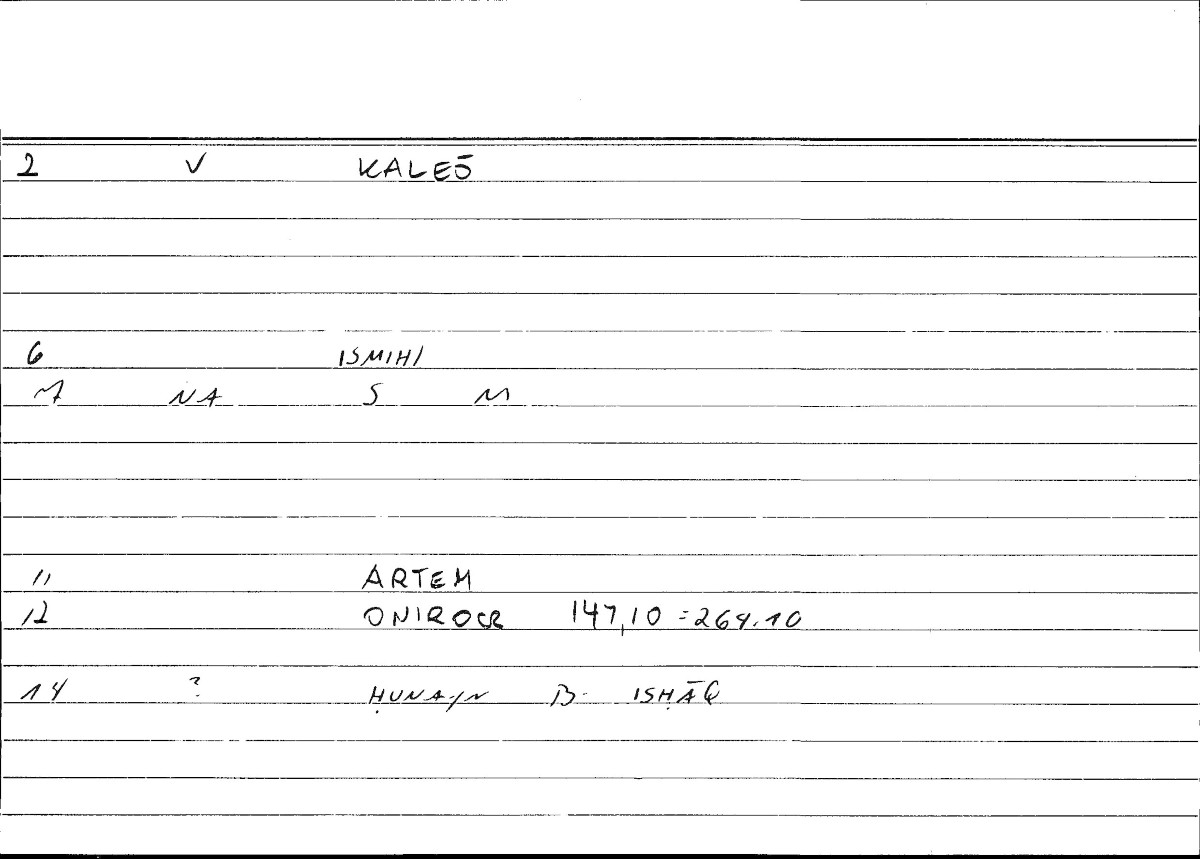 2 V KALEŌ
6 ISMIHI
7 NA S M
11 ARTEM
12 ONIROCR 147,10 = 264.10
14 ? ḤUNAYN B. ISḤĀQ